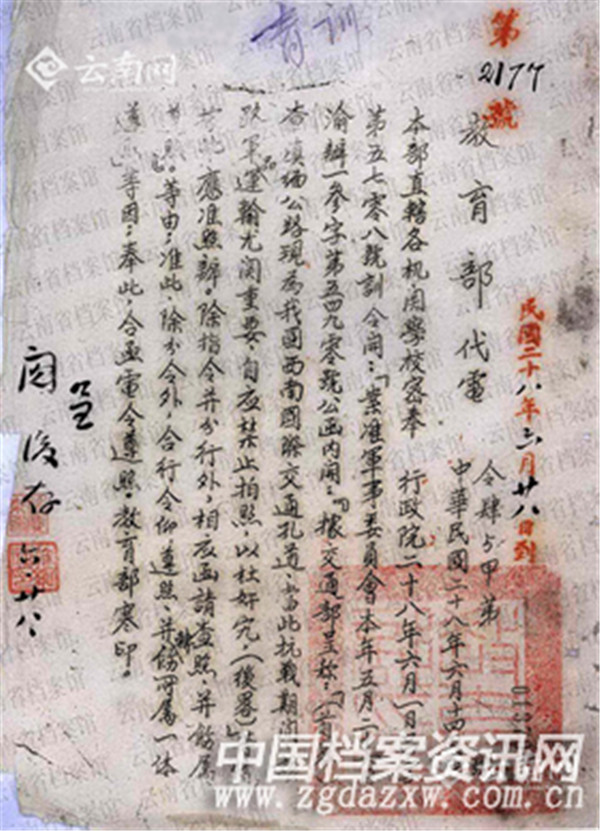 育訓
第
2177
號
教育部代電
民國二十八年六月廿八日到
令肆与甲第
中華民國二十八年六月十四
本部直轄各机関學校密奉 行政院二十八年六月一日
第五七零八號訓令開：「案准軍事委員會本年五月
渝辦一參字第五四九零號公函内開：『據交通部呈称：「
查滇緬公路現為我國西南國際交通孔道，當此抗戰期间
軍運輸尤関重要，自應禁止拍照，以杜奸宄，(後畧)」
應准照辦，除指令并分行外，相應函請查照，并飭属
等由，准此，除分令外，合行令仰遵照，并飭所属一体
等因，奉此，合亟電令遵照。教育部寒印。
閲後存 六、廿八
云南网
中国档案资讯网
www.zgdazxw.com.cn
云南省档案馆